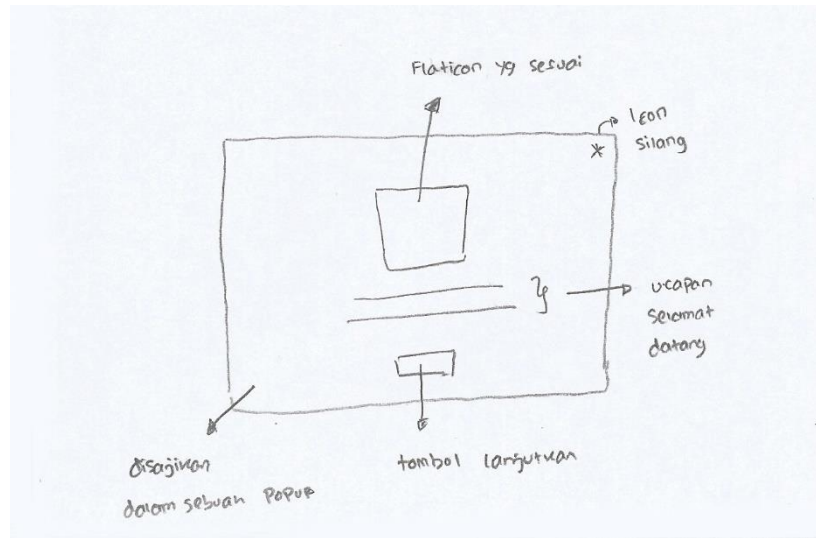 Flaticon yg sesuai
Icon
silang
ucapan
selamat
datang
disajikan
dalam sebuah popup
tombol lanjutkan